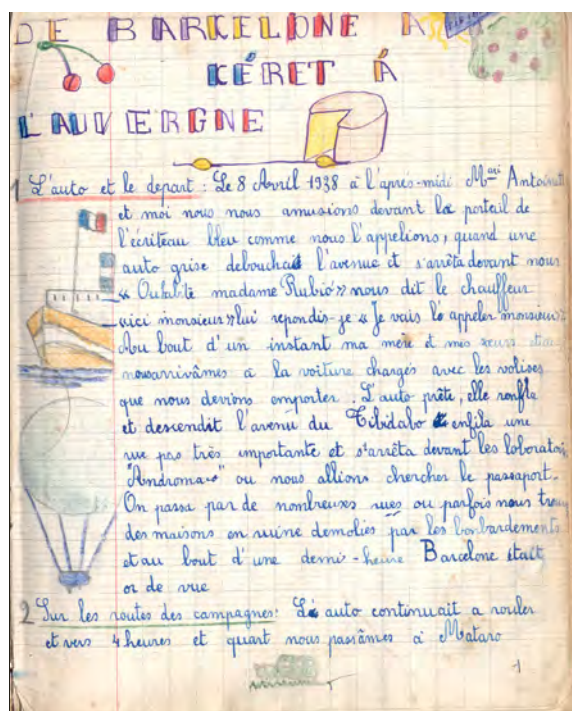 DE BARCELONE A
KÉRET Á
L'AUVERGNE
1 L'auto et le depart : Le 8 Avril 1938 a l'après-midi Mari Antoinett
et moi nous nous amusions devant la porteil de
l'écriteau bleu comme nous l'appelions, quand une
auto grise debouchait l'avenue et s'arrêta devant nous
« Ou madame Rubió» nous dit le chauffeur
«ici monsieur» lui repondis-je « Je vais l'appeler monsieur»
Au bout d'un instant ma mère et mes sœurs
nous arrivâmes a la voiture chargés avec les valises
que nous devions emporter. L'auto prête, elle ronfla
et descendit l'avenu du Tibidabo enfila une
rue pas très importante et s'arrêta devant les laboratoi
"Andromaco" ou nous allions chercher le passaport.
On passa par de nombreuses rues ou parfois nous trou
des maisons en ruine demolies par les bonbardements
et au bout d'une demi-heure Barcelone était
or de vue
2 Sur les routes des campagnes: L'auto continuait a rouler
et vers 4 heures et quart nous passâmes a Mataro
1